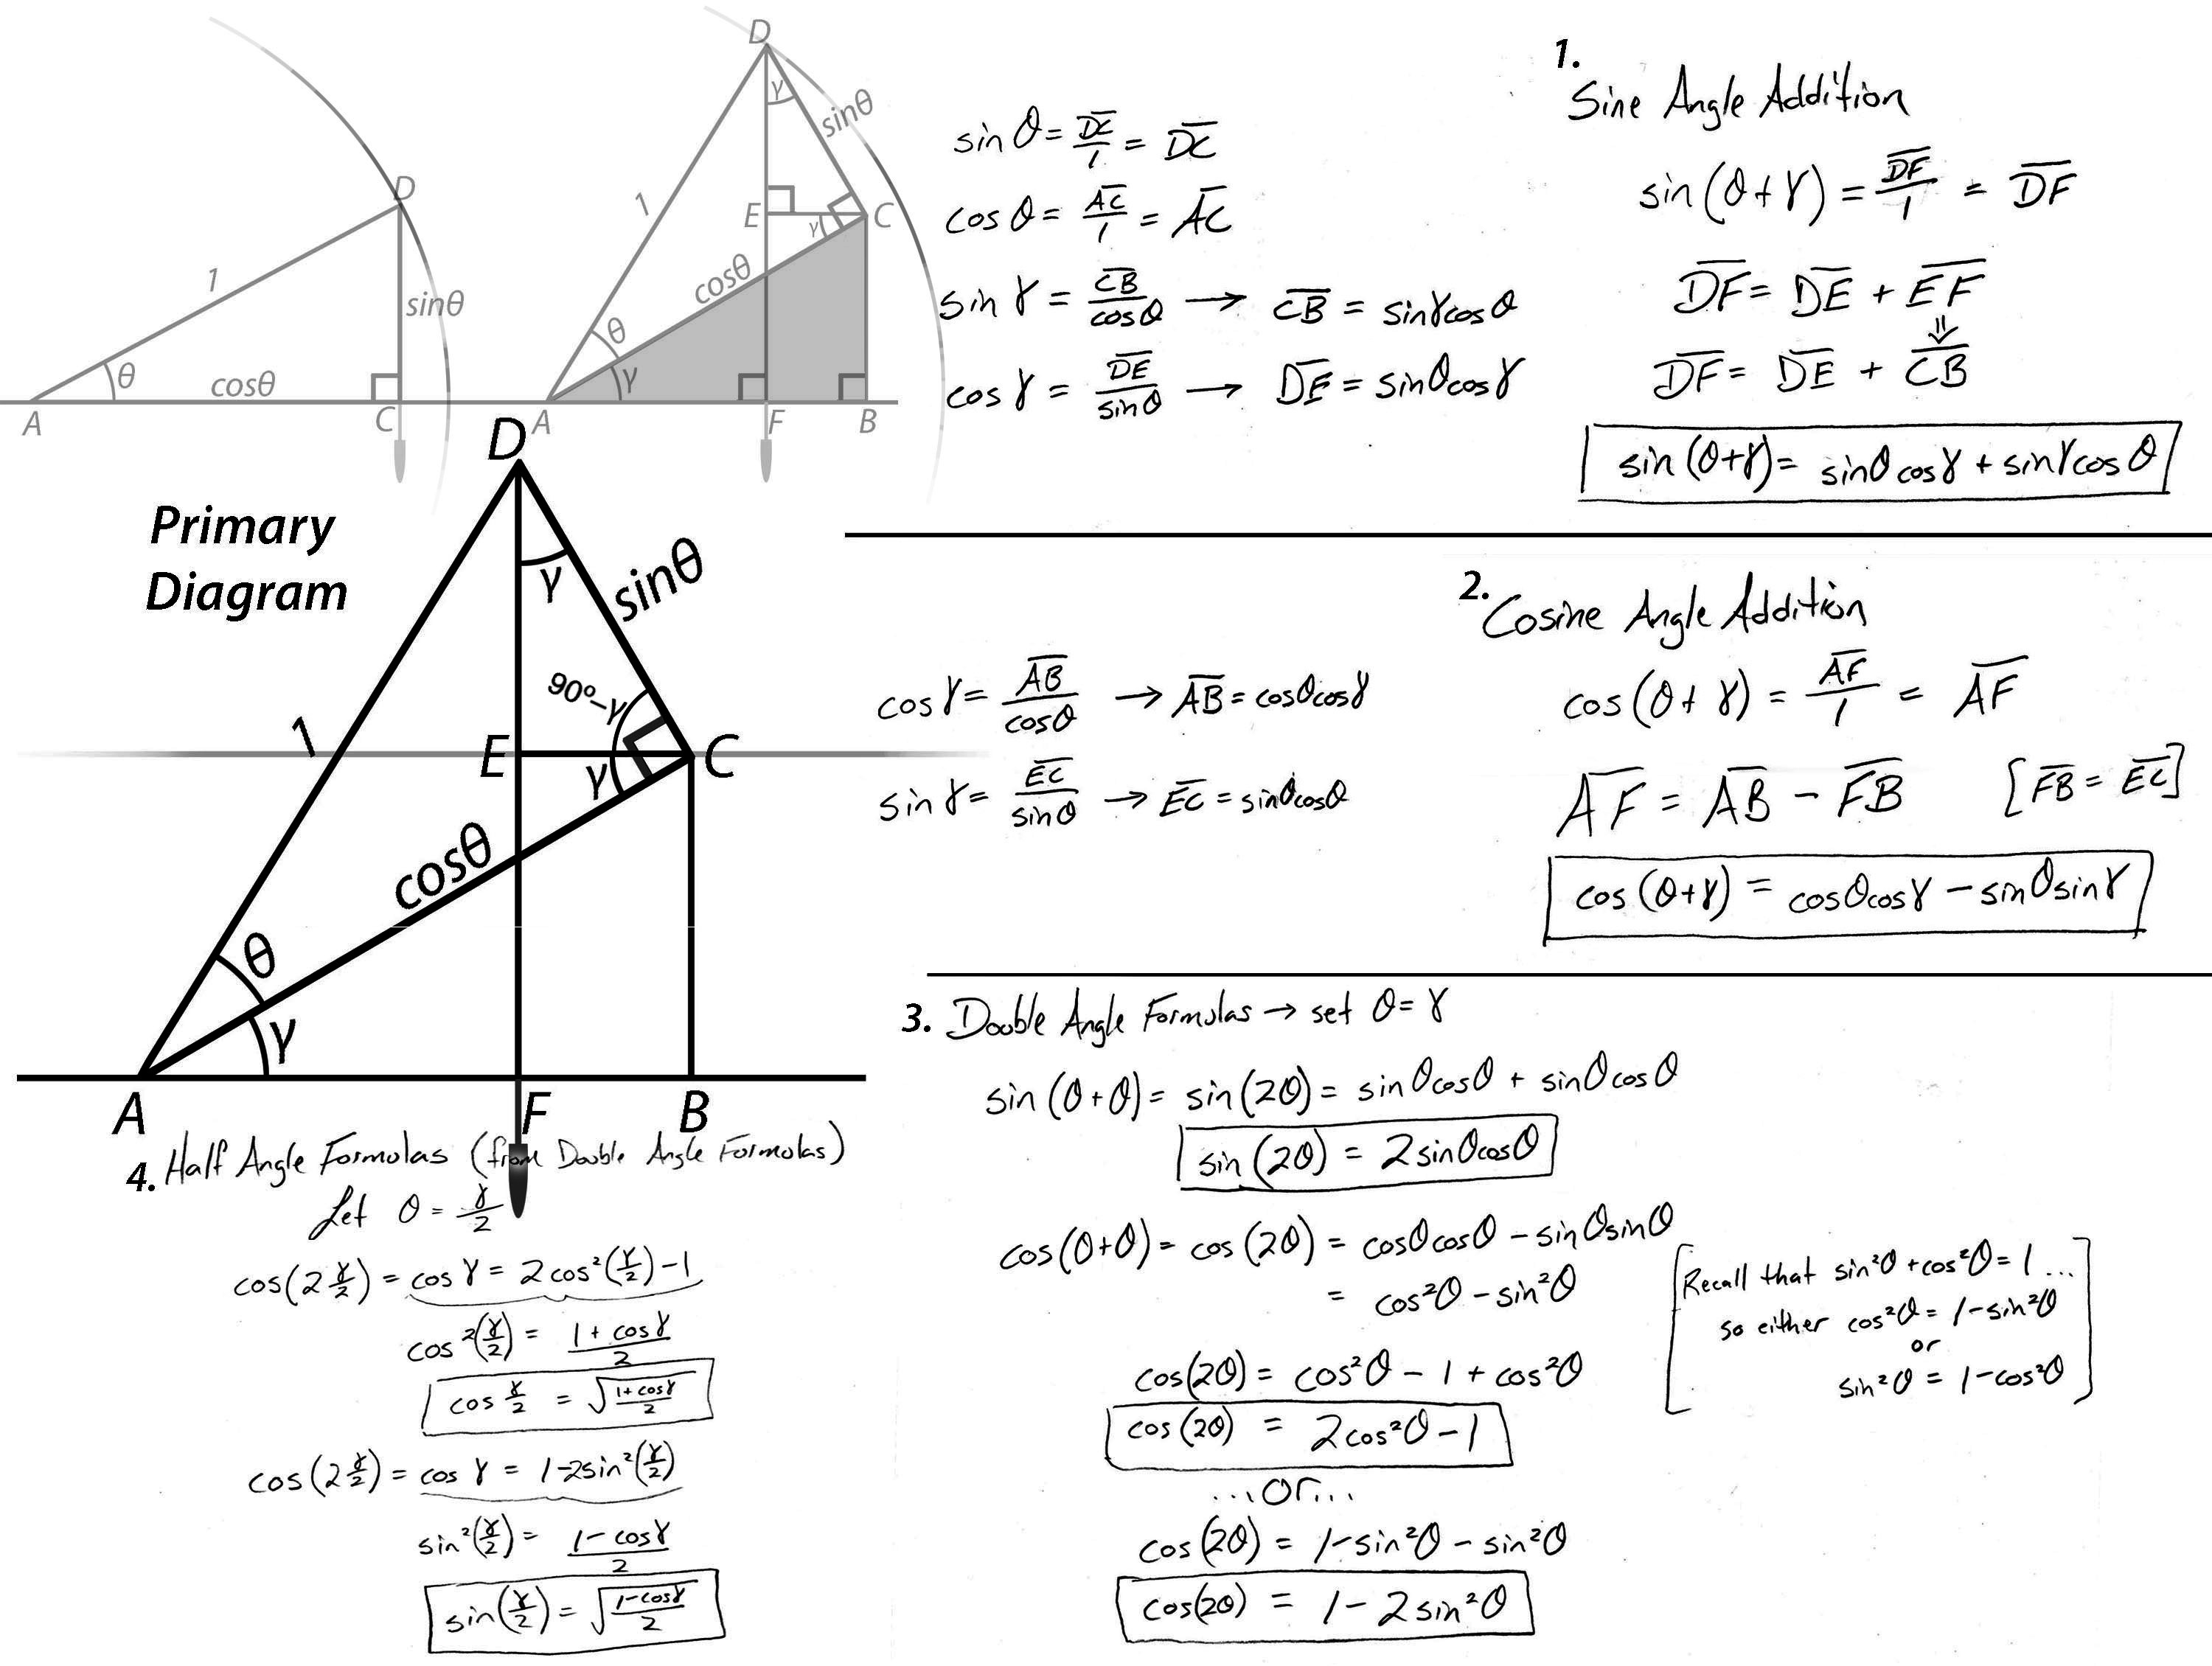 D
1
sinθ
θ
cosθ
A
C
D
γ
sinθ
1
E
C
γ
cosθ
θ
γ
A
F
B
sin θ = DC/1 = DC
cos θ = AC/1 = AC
sin γ = CB/cosθ → CB = sinγcosθ
cos γ = DE/sinθ → DE = sinθcosγ
1.
Sine Angle Addition
sin(θ+γ) = DF/1 = DF
DF = DE + EF
DF = DE + CB
sin(θ+γ) = sinθcosγ + sinγcosθ
Primary
Diagram
D
γ
sinθ
90º–γ
1
E
C
γ
cosθ
θ
γ
A
F
B
2.
Cosine Angle Addition
cos γ = AB/cosθ → AB = cosθcosγ
sin γ = EC/sinθ → EC = sinθcosθ
cos(θ+γ) = AF/1 = AF
AF = AB – FB [FB = EC]
cos(θ+γ) = cosθcosγ – sinθsinγ
3. Double Angle Formulas → set θ=γ
sin(θ+θ) = sin(2θ) = sinθcosθ + sinθcosθ
sin(2θ) = 2sinθcosθ
cos(θ+θ) = cos(2θ) = cosθcosθ – sinθsinθ
= cos²θ – sin²θ
[Recall that sin²θ+cos²θ=1...
so either cos²θ = 1–sin²θ
or
sin²θ = 1–cos²θ]
cos(2θ) = cos²θ – 1 + cos²θ
cos(2θ) = 2cos²θ–1
...or...
cos(2θ) = 1–sin²θ – sin²θ
cos(2θ) = 1–2sin²θ
4. Half Angle Formulas (from Double Angle Formulas)
Let θ = γ/2
cos(2 γ/2) = cos γ = 2cos²(γ/2)–1
cos²(γ/2) = (1+cosγ)/2
cos γ/2 = √((1+cosγ)/2)
cos(2 γ/2) = cos γ = 1–2sin²(γ/2)
sin²(γ/2) = (1–cosγ)/2
sin(γ/2) = √((1–cosγ)/2)